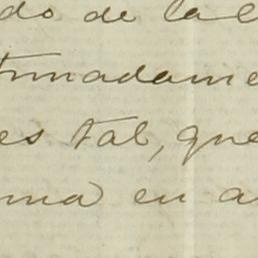 do de la
timadame
es tal, que
ma en a